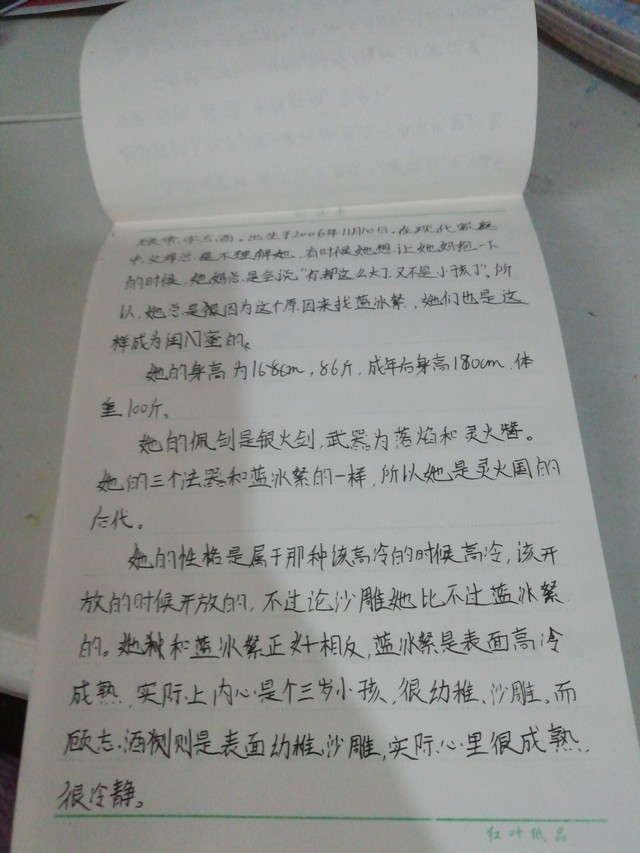 出生于2006年11月10日。在现代家庭
中父母总是不理解她，有时候她想让她妈抱一下
的时候，她妈总是会说“你都这么大了，又不是小孩了”。所
以，她总是很因为这个原因来找蓝冰絮，她们也是这
样成为闺蜜的。
她的身高为168cm，86斤，成年后身高180cm，体
重100斤。
她的佩剑是银火剑，武器为落焰和灵火簪。
她的三个法器和蓝冰絮的一样，所以她是灵火国的
后代。
她的性格是属于那种该高冷的时候高冷，该开
放的时候开放的，不过论沙雕她比不过蓝冰絮
的。她和蓝冰絮正好相反，蓝冰絮是表面高冷
成熟，实际上内心是个三岁小孩，很幼稚、沙雕。而
顾志洒则是表面幼稚沙雕，实际心里很成熟，
很冷静。
红叶纸品